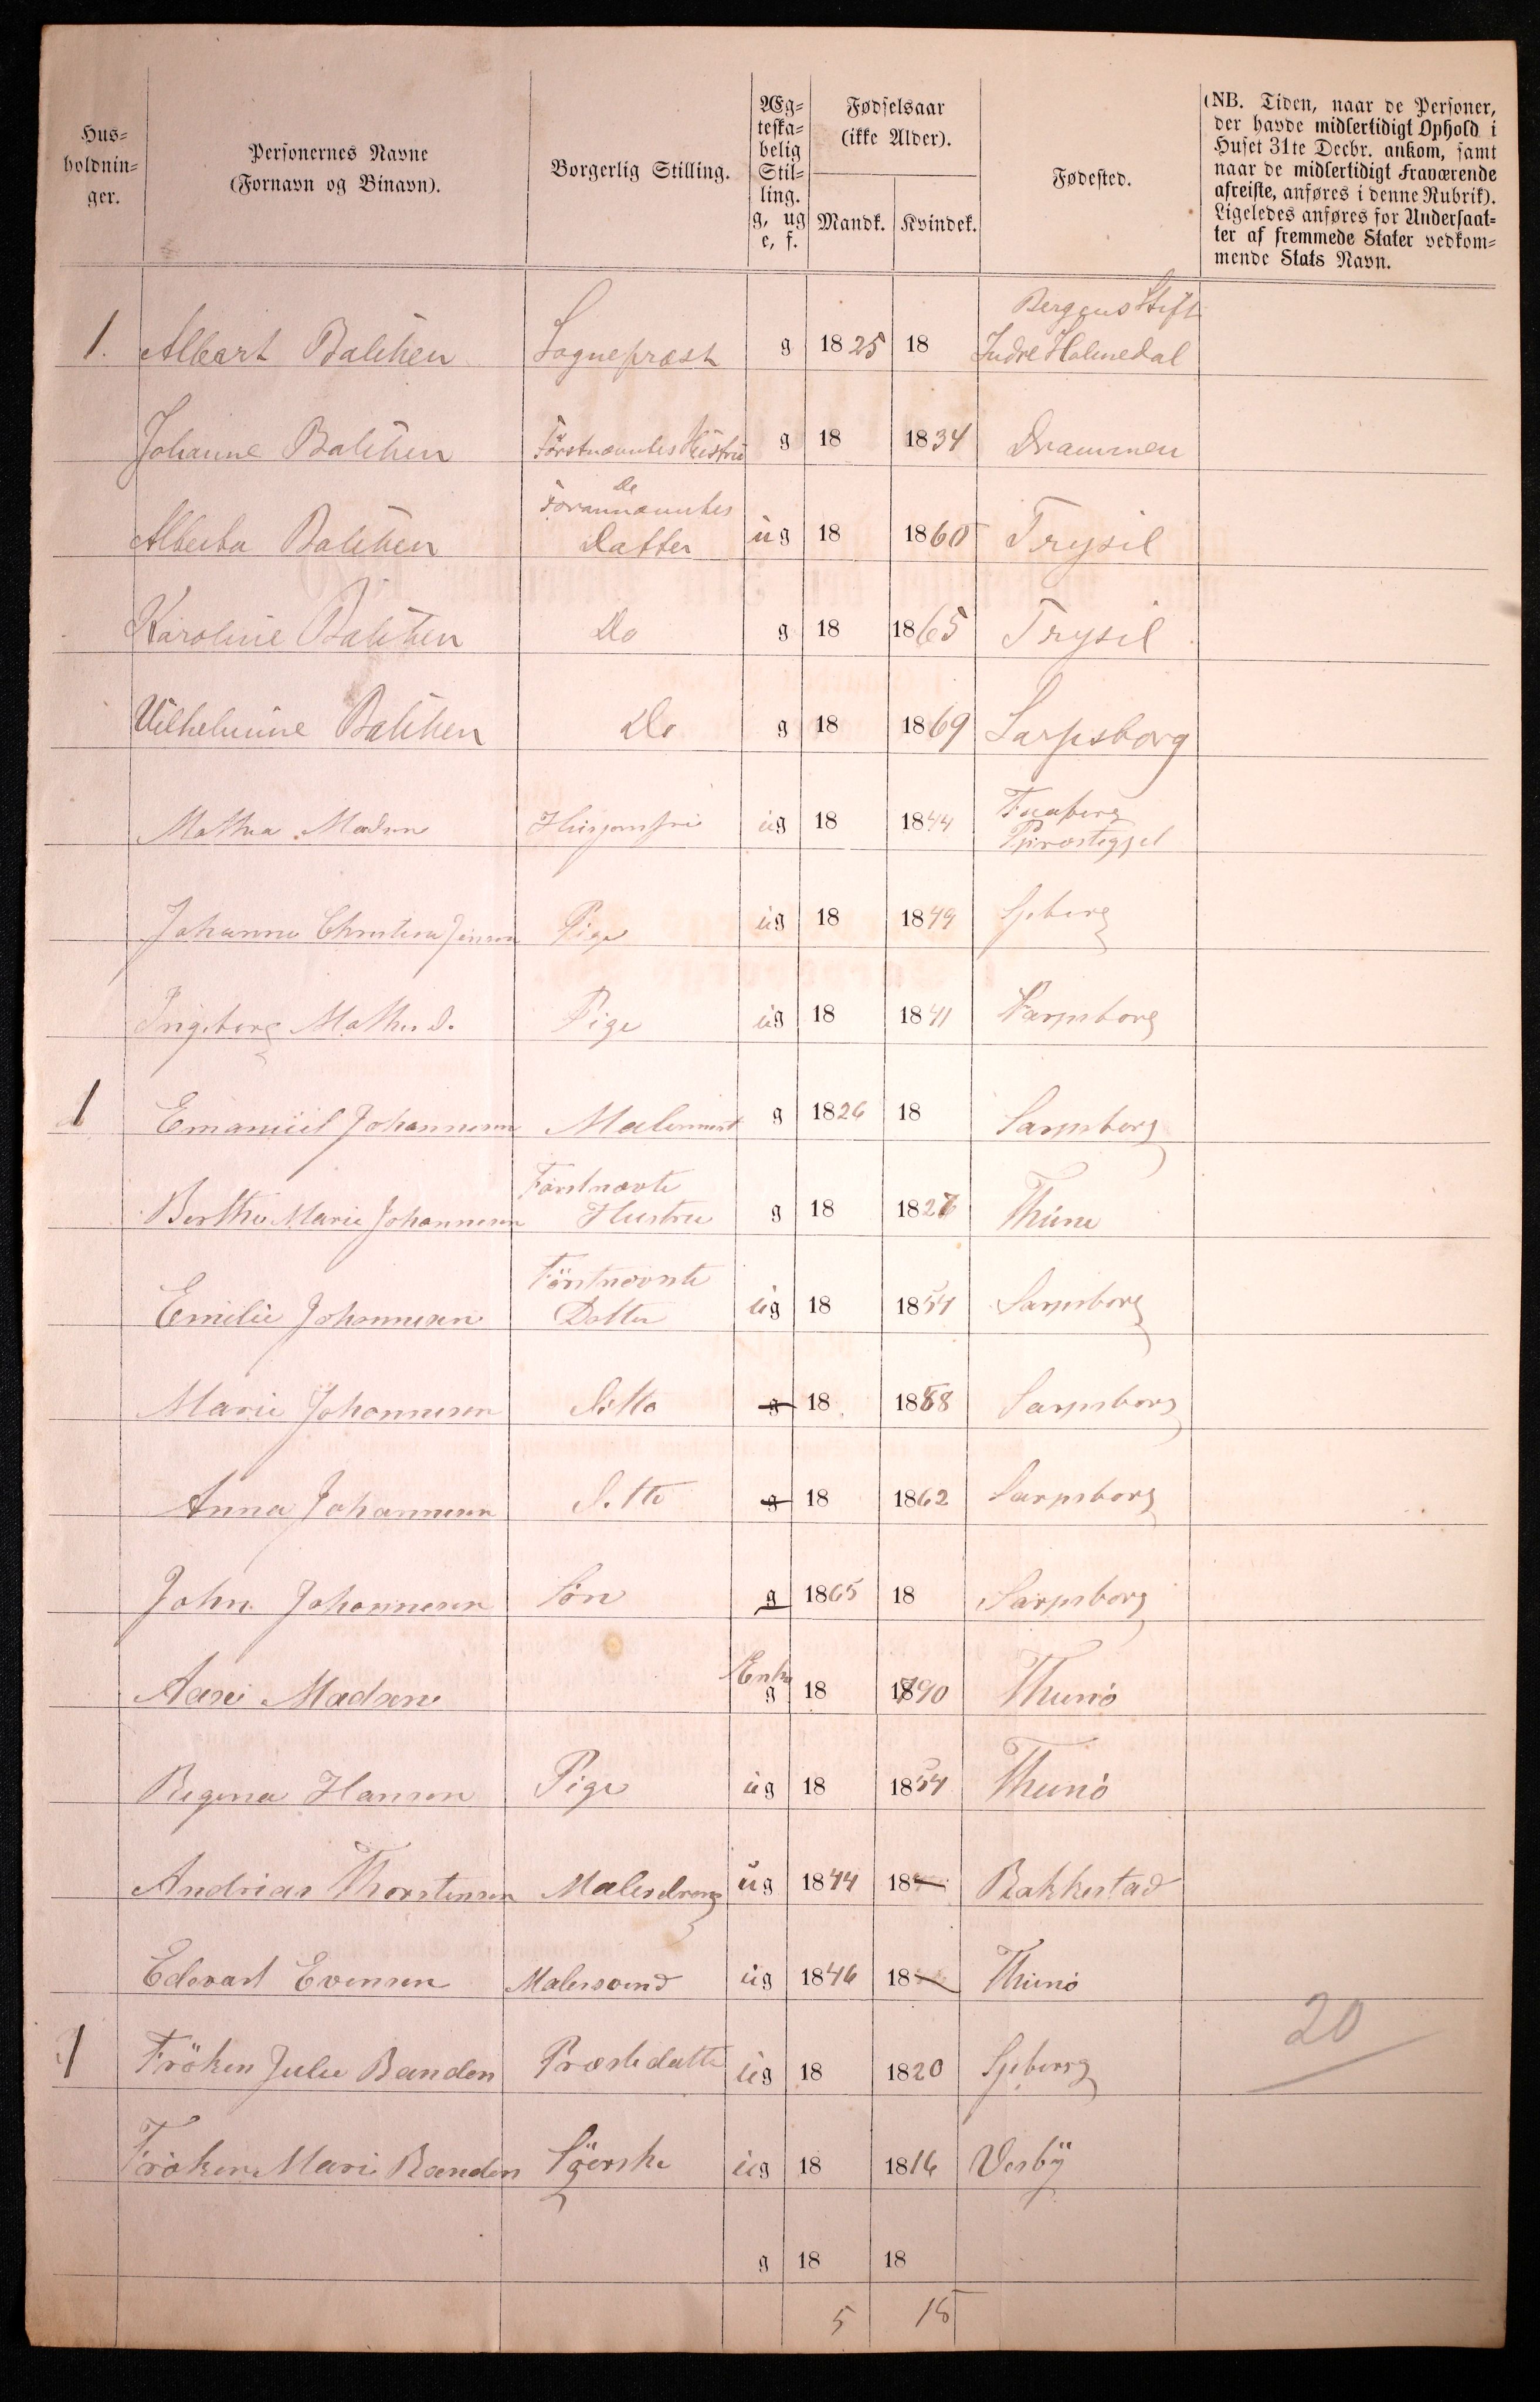 Hus-
holdnin-
ger.
Personernes Navne
(Fornavn og Binavn).
Borgerlig Stilling.
Æg-
teska-
belig
Stil-
ling.
g, ug
e, f.
Fødselsaar
(ikke Alder).
Mandk. Kvindek.
Fødested.
(NB. Tiden, naar de Personer,
der havde midlertidigt Ophold i
Huset 31te Decbr. ankom, samt
naar de midlertidigt fraværende
afreiste, anføres i denne Rubrik).
Ligeledes anføres for Undersaat-
ter af fremmede Stater vedkom-
mende Stats Navn.
Bergens Stift
1. Albert Balchen Sogneprest g 1825 18 Indre Holmedal
Johanne Balchen Förstnævntes Hustru g 18 1834 Drammen
De
Forannævntes
Alberta Balchen Datter ug 18 1860 Trysil
Karoline Balchen Do g 18 1865 Trysil
Vilhelmine Balchen Do g 18 1869 Sarpsborg
Faaberg
Mathea Madsen Husjomfru ug 18 1844 Præstegjel
Johanne Christina Jensen Pige ug 18 1849 Spberg
Ingeborg Mathis D. Pige ug 18 1841 Sarpsborg
1 Emanuel Johannesen Malermest g 1826 18 Sarpsborg
Förstnævnte
Berthe Marie Johannesen Hustru g 18 1827 Thune
Förstnævnte
Emilie Johannesen Datter ug 18 1851 Sarpsborg
Marie Johannesen Ditto g 18 1858 Sarpsborg
Anna Johannesen Ditto g 18 1862 Sarpsborg
John Johannesen Sön g 1865 18 Sarpsborg
Enke
Aase Madsen g 18 1790 Thunö
Regina Hansen Pige ug 18 1854 Thunö
Andrias Thorstensen Malerdreng ug 1844 18 Rakkestad
Edevart Evensen Malersvend ug 1846 18 Thunö
20
1 Fröken Julie Banden Præstedatte ug 18 1820 Spberg
Fröken Marie Banden Syerske ug 18 1816 Vesby
g 18 18
5 15